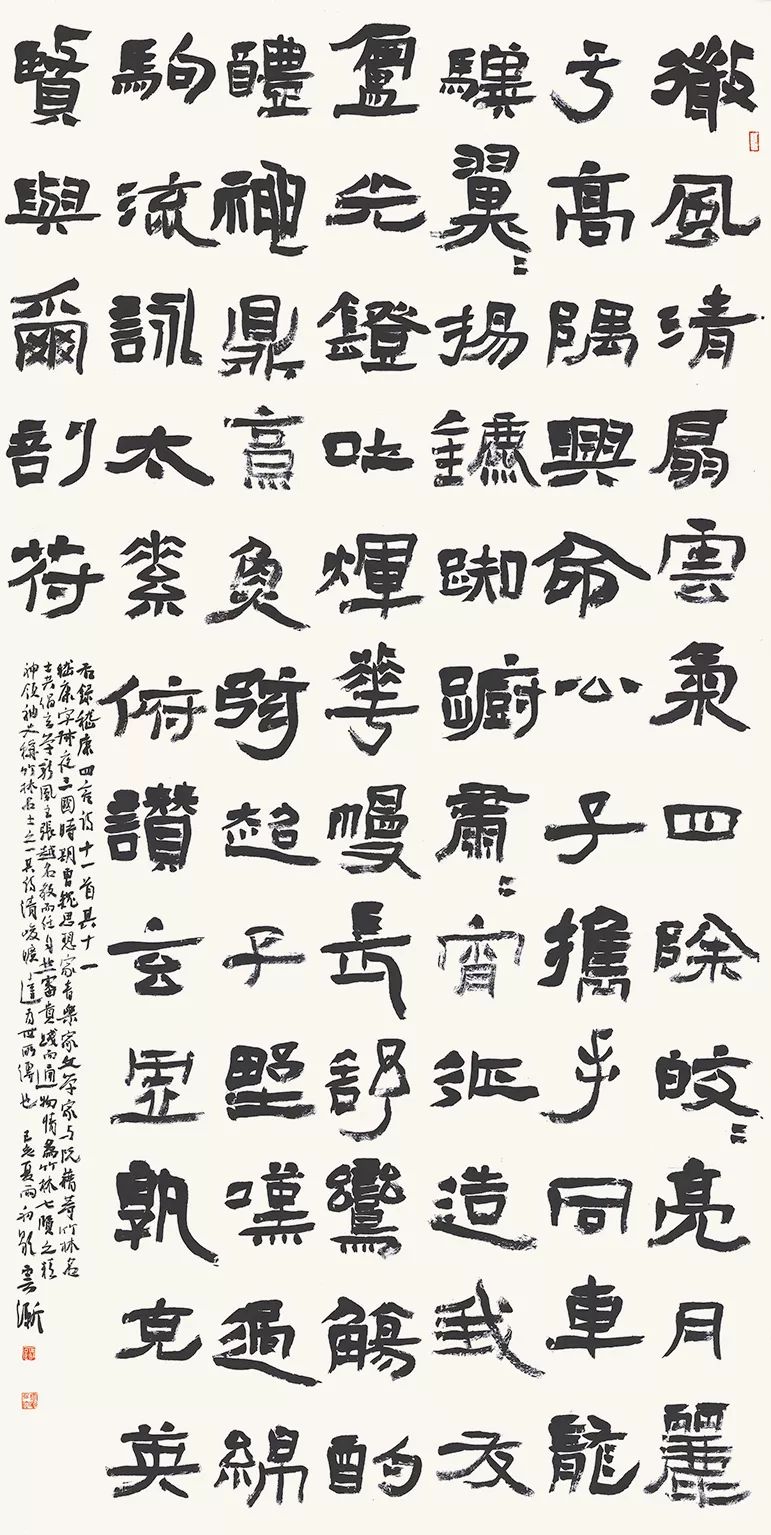 微風清扇雲氣四除皎〻亮月麗
于高隅興命公子攜手同車龍
驥翼〻揚鑣踟躕肅〻宵征造我友
廬光鐙吐煇華幔長舒鸞觴酌
醴神鼎烹魚弦超子野嘆過綿
駒流詠太素俯讚玄虛孰克英
賢與爾剖符
右錄嵇康四言詩十一首其十一
嵇康字叔夜三國時期曹魏思想家音樂家文學家与阮籍等竹林名
士共倡玄學新風主張越名教而任自然審貴賤而通物情為竹林七賢之精
神領袖又稱竹林名士之一其詩清峻曠達為世所傳也 己亥夏雨初歇 雲漸